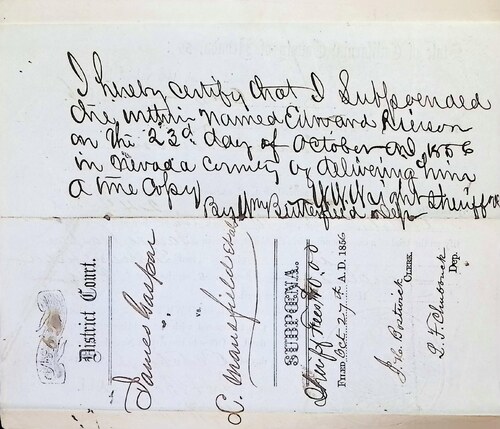 I hereby certify that I Subpoenaed
the within named Edward Rierson
on the 23d day of October AD 1856
in Nevada County by delivering him
a true Copy W. W. Wright Sheriff
By Wm Butterfield Dep
District Court.
James Gaspar
vs.
L. Mansfield et al
SUBPOENA.
Sheriff fees $0.00
FILED Oct 27th A.D. 1856
J. C. Bostwick
CLERK.
Dep.